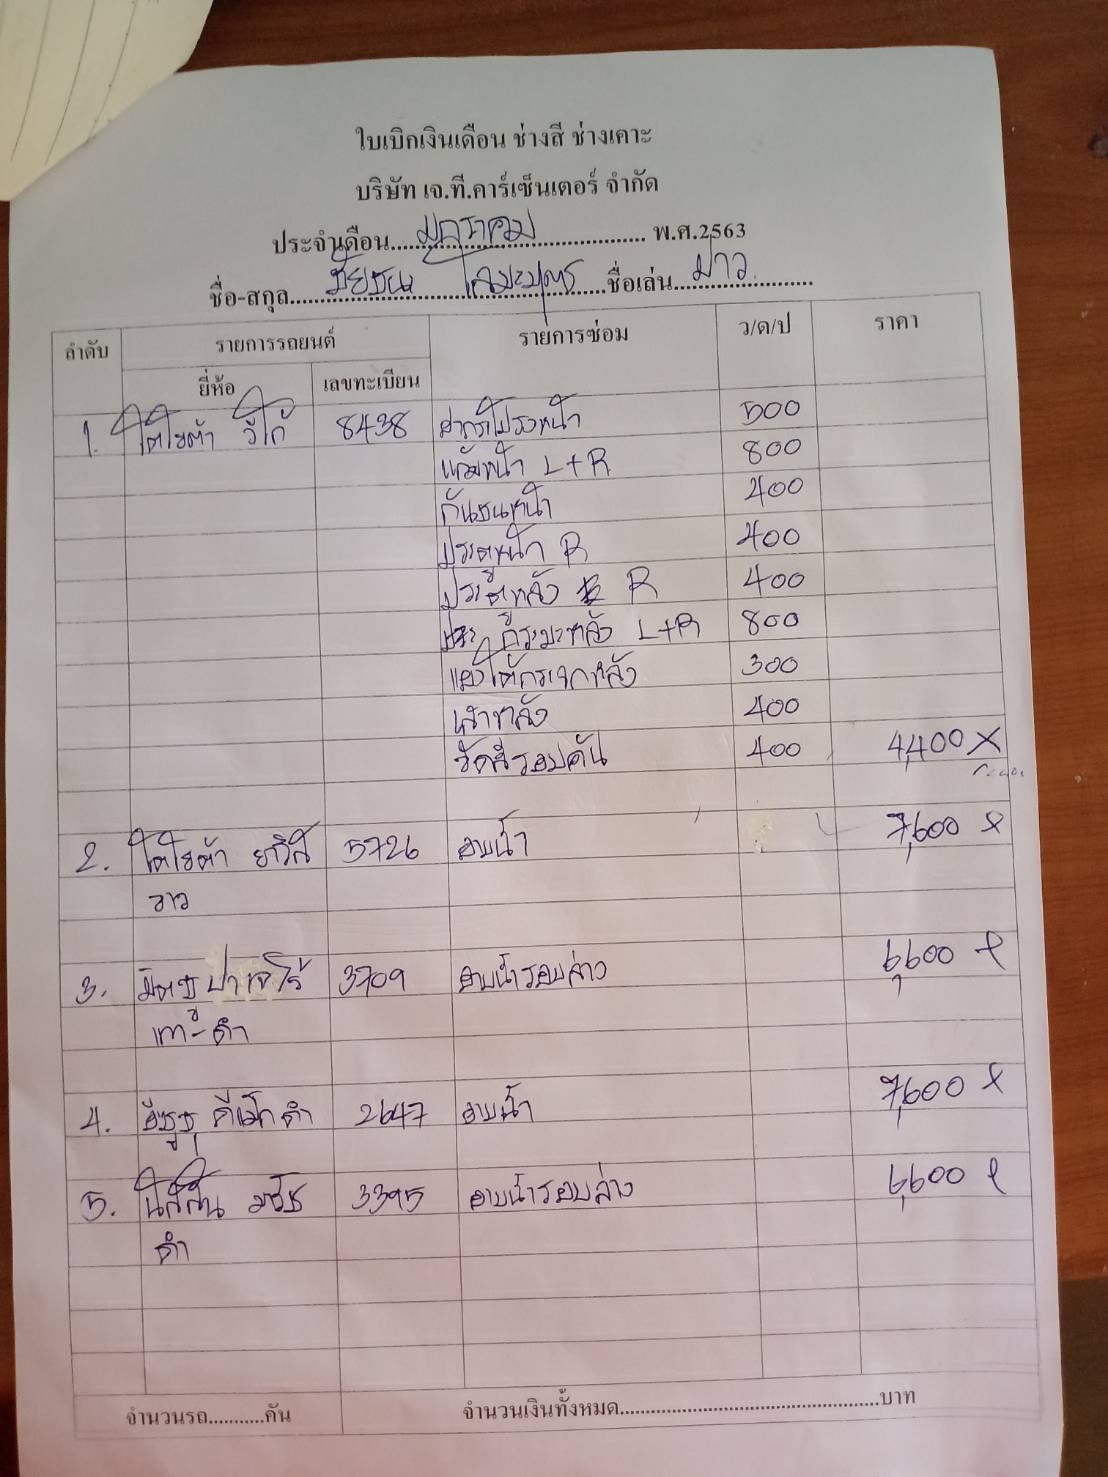 ใบเบิกเงินเดือน ช่างสี ช่างเคาะ
บริษัท เจ.ที.คาร์เซ็นเตอร์ จำกัด
ประจำเดือน.....มกราคม.....พ.ศ.2563
ชื่อ-สกุล.....ชัยชนะ.....ชื่อเล่น.....บ่าว.....
ลำดับ รายการรถยนต์ รายการซ่อม ว/ด/ป ราคา
ยี่ห้อ เลขทะเบียน
1. โตโยต้า วีโก้ 8438 ฝากระโปรงหน้า 500
แก้มหน้า L+R 800
กันชนหน้า 400
ประตูหน้า R 400
ประตูหลัง R 400
กระบะหลัง L+R 800
แผงใต้กระจกหลัง 300
เสาหลัง 400
ขัดสีรอบคัน 400 4,400 X
2. โตโยต้า ยาริส 5726 อาบน้ำ 7,600 X
ขาว
3. มิตซู ปาเจโร่ 3709 อาบน้ำรอบล่าง 6,600
เทา-ดำ
4. อีซูซุ ดีแม็ก ดำ 2647 อาบน้ำ 7,600 X
5. นิสสัน มาร์ช 3395 อาบน้ำรอบล่าง 6,600
ดำ
จำนวนรถ...........คัน จำนวนเงินทั้งหมด..................................................บาท